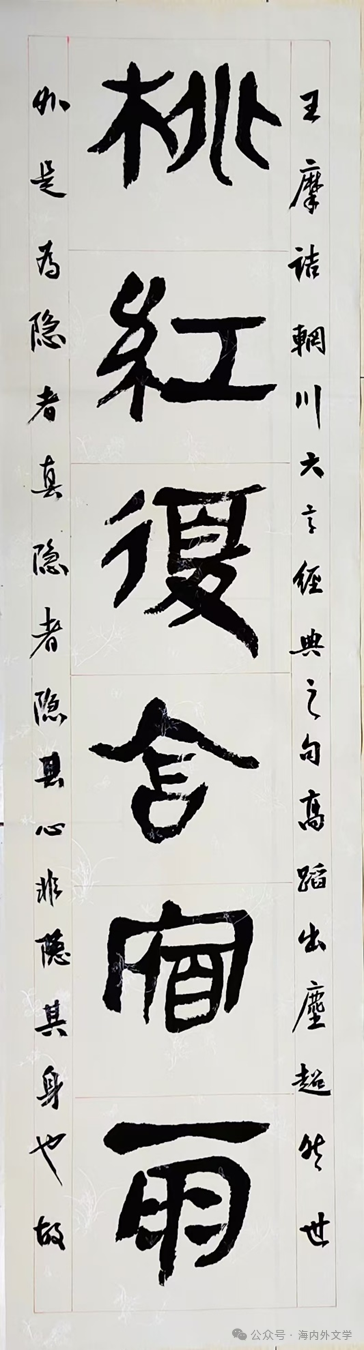 王摩诘輞川六言經典之句高蹈出塵超然世
桃紅復含宿雨
外是为隐者真隐者隐其心非隐其身也故
公众号·海内外文学